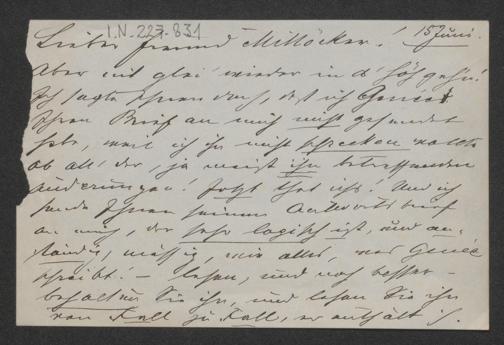 I.N. 227.831
15 Juni.
Lieber Freund Millöcker!
Aber nit glei' wieder in d' Höh gehn!
Ich sagte Ihnen doch, daß ich Genée
Ihren Brief an mich nicht gesendet
habe, weil ich ihn nicht schrecken wollte
ob all' der, ja meist ihn betreffenden
Änderungen! Jetzt that ich's! Und ich
sende Ihnen seinen Antwortsbrief
an mich, der sehr logisch ist, und an-
ständig, mässig, wie alles, was Genée
schreibt! – lesen, und noch besser –
behalten Sie ihn, und lesen Sie ihn
von Fall zu Fall, er enthält